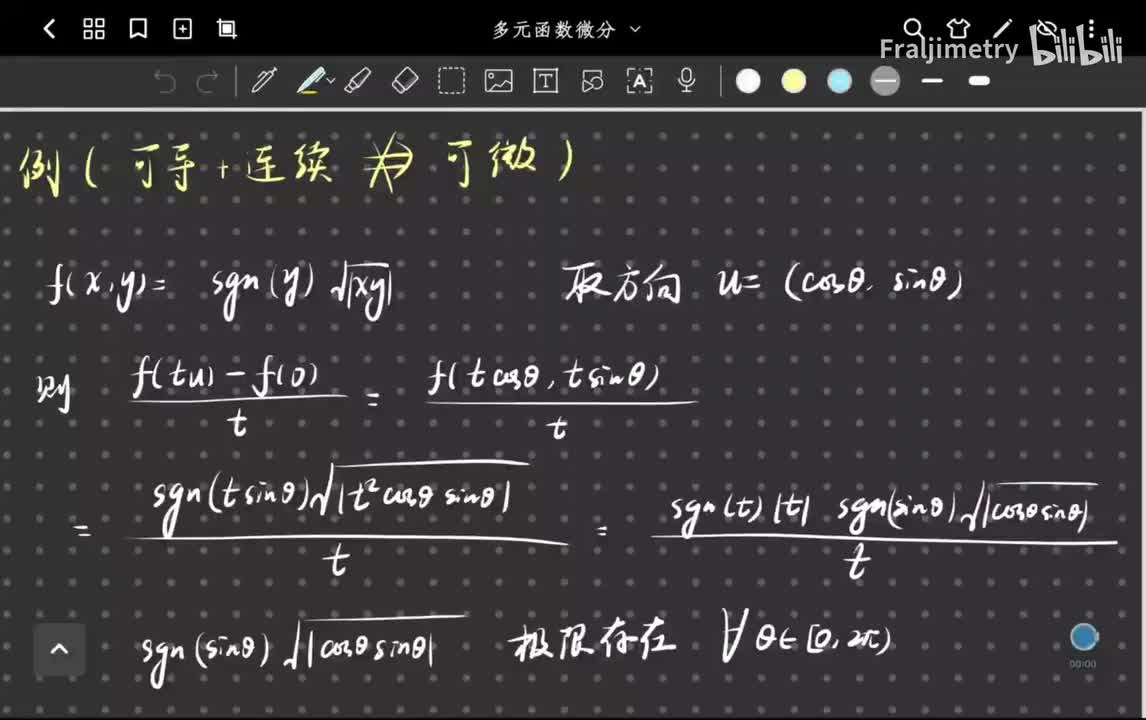 多元函数微分
Fraljimetry bilibili
例(可导+连续 ⇏ 可微)
f(x,y)= sgn(y)√|xy| 取方向 u=(cosθ, sinθ)
则 (f(tu)-f(0))/t = f(tcosθ, tsinθ)/t
= sgn(tsinθ)√|t²cosθ sinθ| / t = sgn(t)|t| sgn(sinθ)√|cosθsinθ| / t
sgn(sinθ)√|cosθsinθ| 极限存在 ∀θ∈[0,2π)
00:00